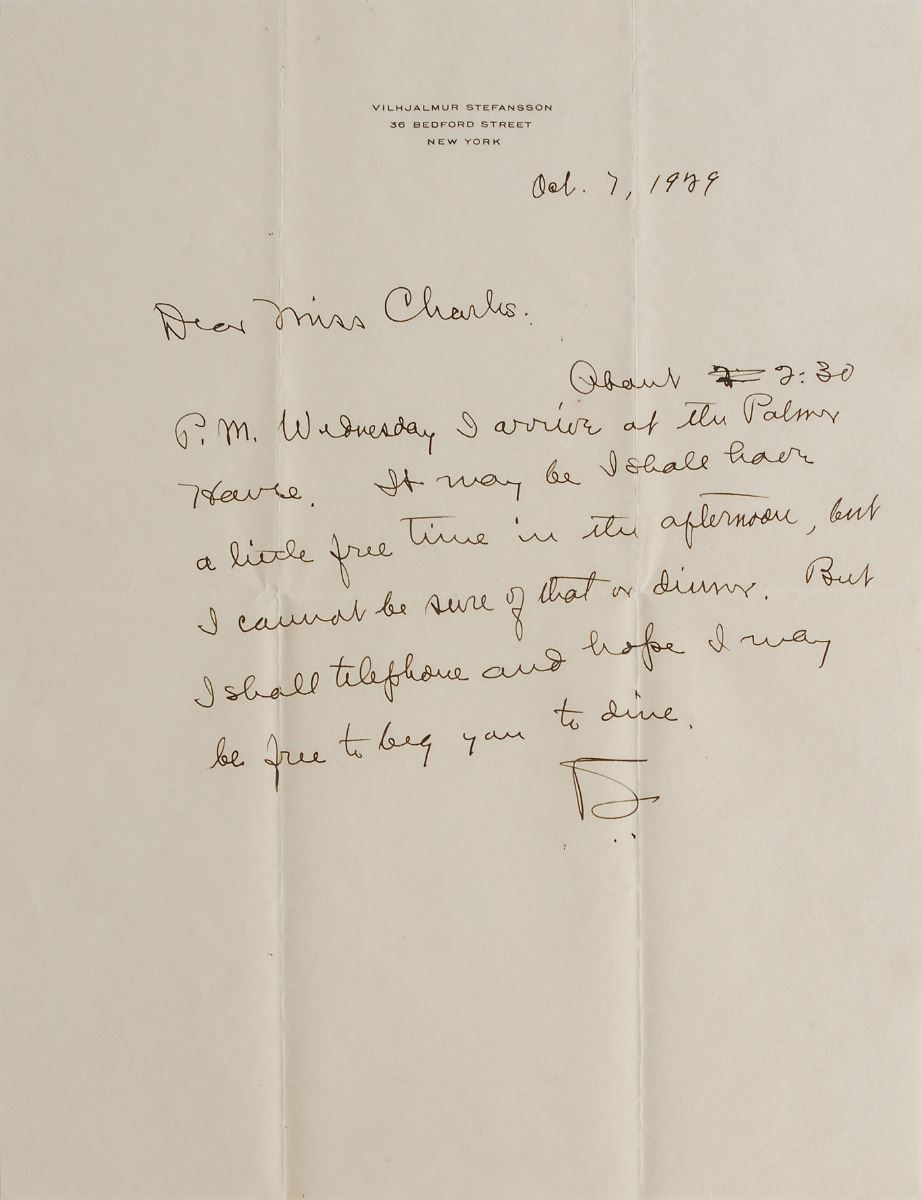 VILHJALMUR STEFANSSON
36 BEDFORD STREET
NEW YORK
Oct. 7, 1929
Dear Miss Charles.
About 2:30
P.M. Wednesday I arrive at the Palmer
House. It may be I shall have
a little free time in the afternoon, but
I cannot be sure of that or dinner. But
I shall telephone and hope I may
be free to beg you to dine.